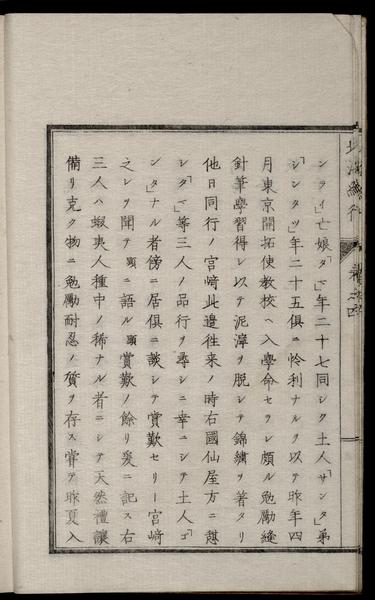 ンライ」亡娘「タ」年二十七同シク土人「サンタ」弟
「シンタツ」年二十五俱ニ怜利ナルヲ以テ昨年四
月東京開拓使教校ヘ入學命セラレ頗ル勉勵縫
針筆學習得シ以テ泥滓ヲ脱シテ錦繍ヲ著タリ
他日同行ノ宮﨑此邉徃来ノ時右國仙屋方ニ憇
シ「タ」等三人ノ品行ヲ尋シニ幸ニシテ土人「コ
ンタ」ナル者傍ニ居俱ニ談シテ賞歎セリ一宮﨑
之レヲ聞テ顕ニ語ル顕賞歎ノ餘リ爰ニ記ス右
三人ハ蝦夷人種中ノ稀ナル者ニシテ天然禮讓
備リ克ク物ニ勉勵耐忍ノ質ヲ存ス甞テ昨夏入